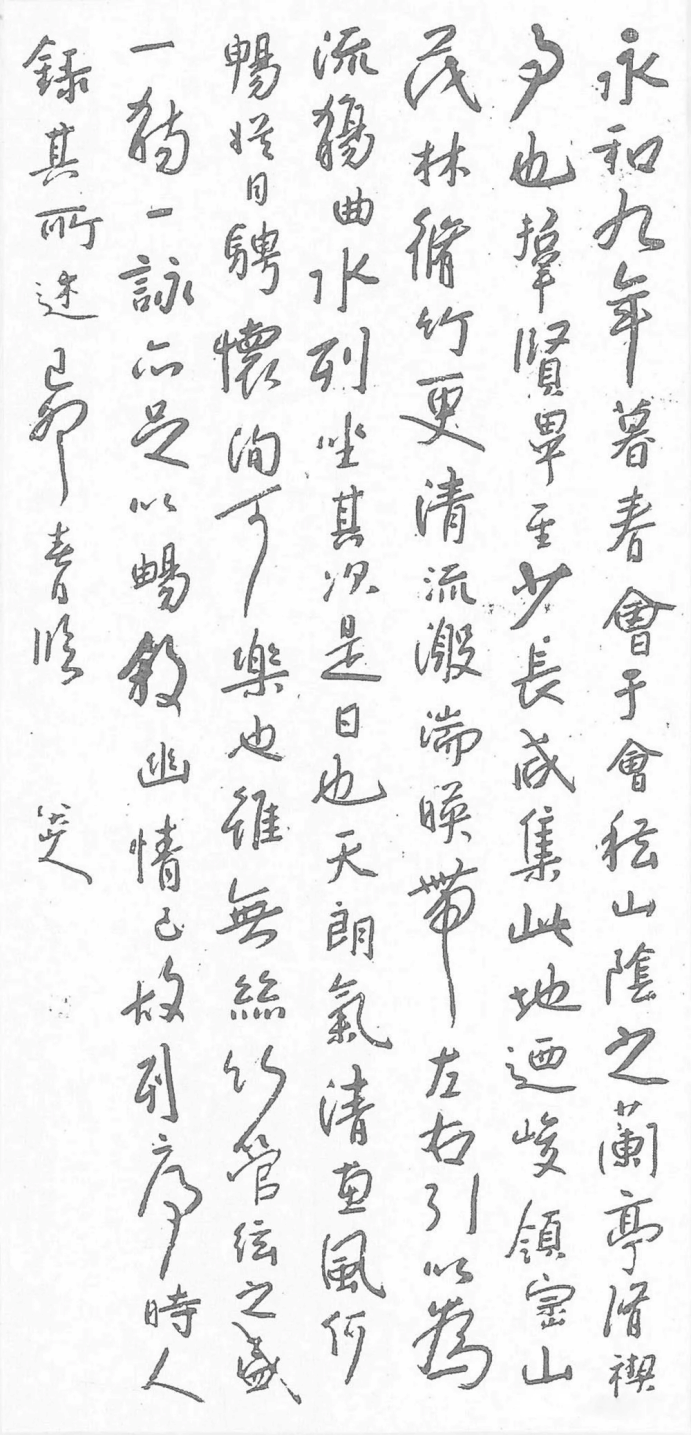 永和九年暮春會于會嵇山陰之蘭亭脩禊
事也羣賢畢至少長咸集此地迺峻領崇山
茂林脩竹更清流激湍暎帶左右引以為
流觴曲水列坐其次是日也天朗氣清惠風何
暢娛目騁懷洵可樂也雖無絲竹管絃之盛
一觴一詠亦足以暢敘幽情已故列序時人
錄其所述已卯春臨
八大山人